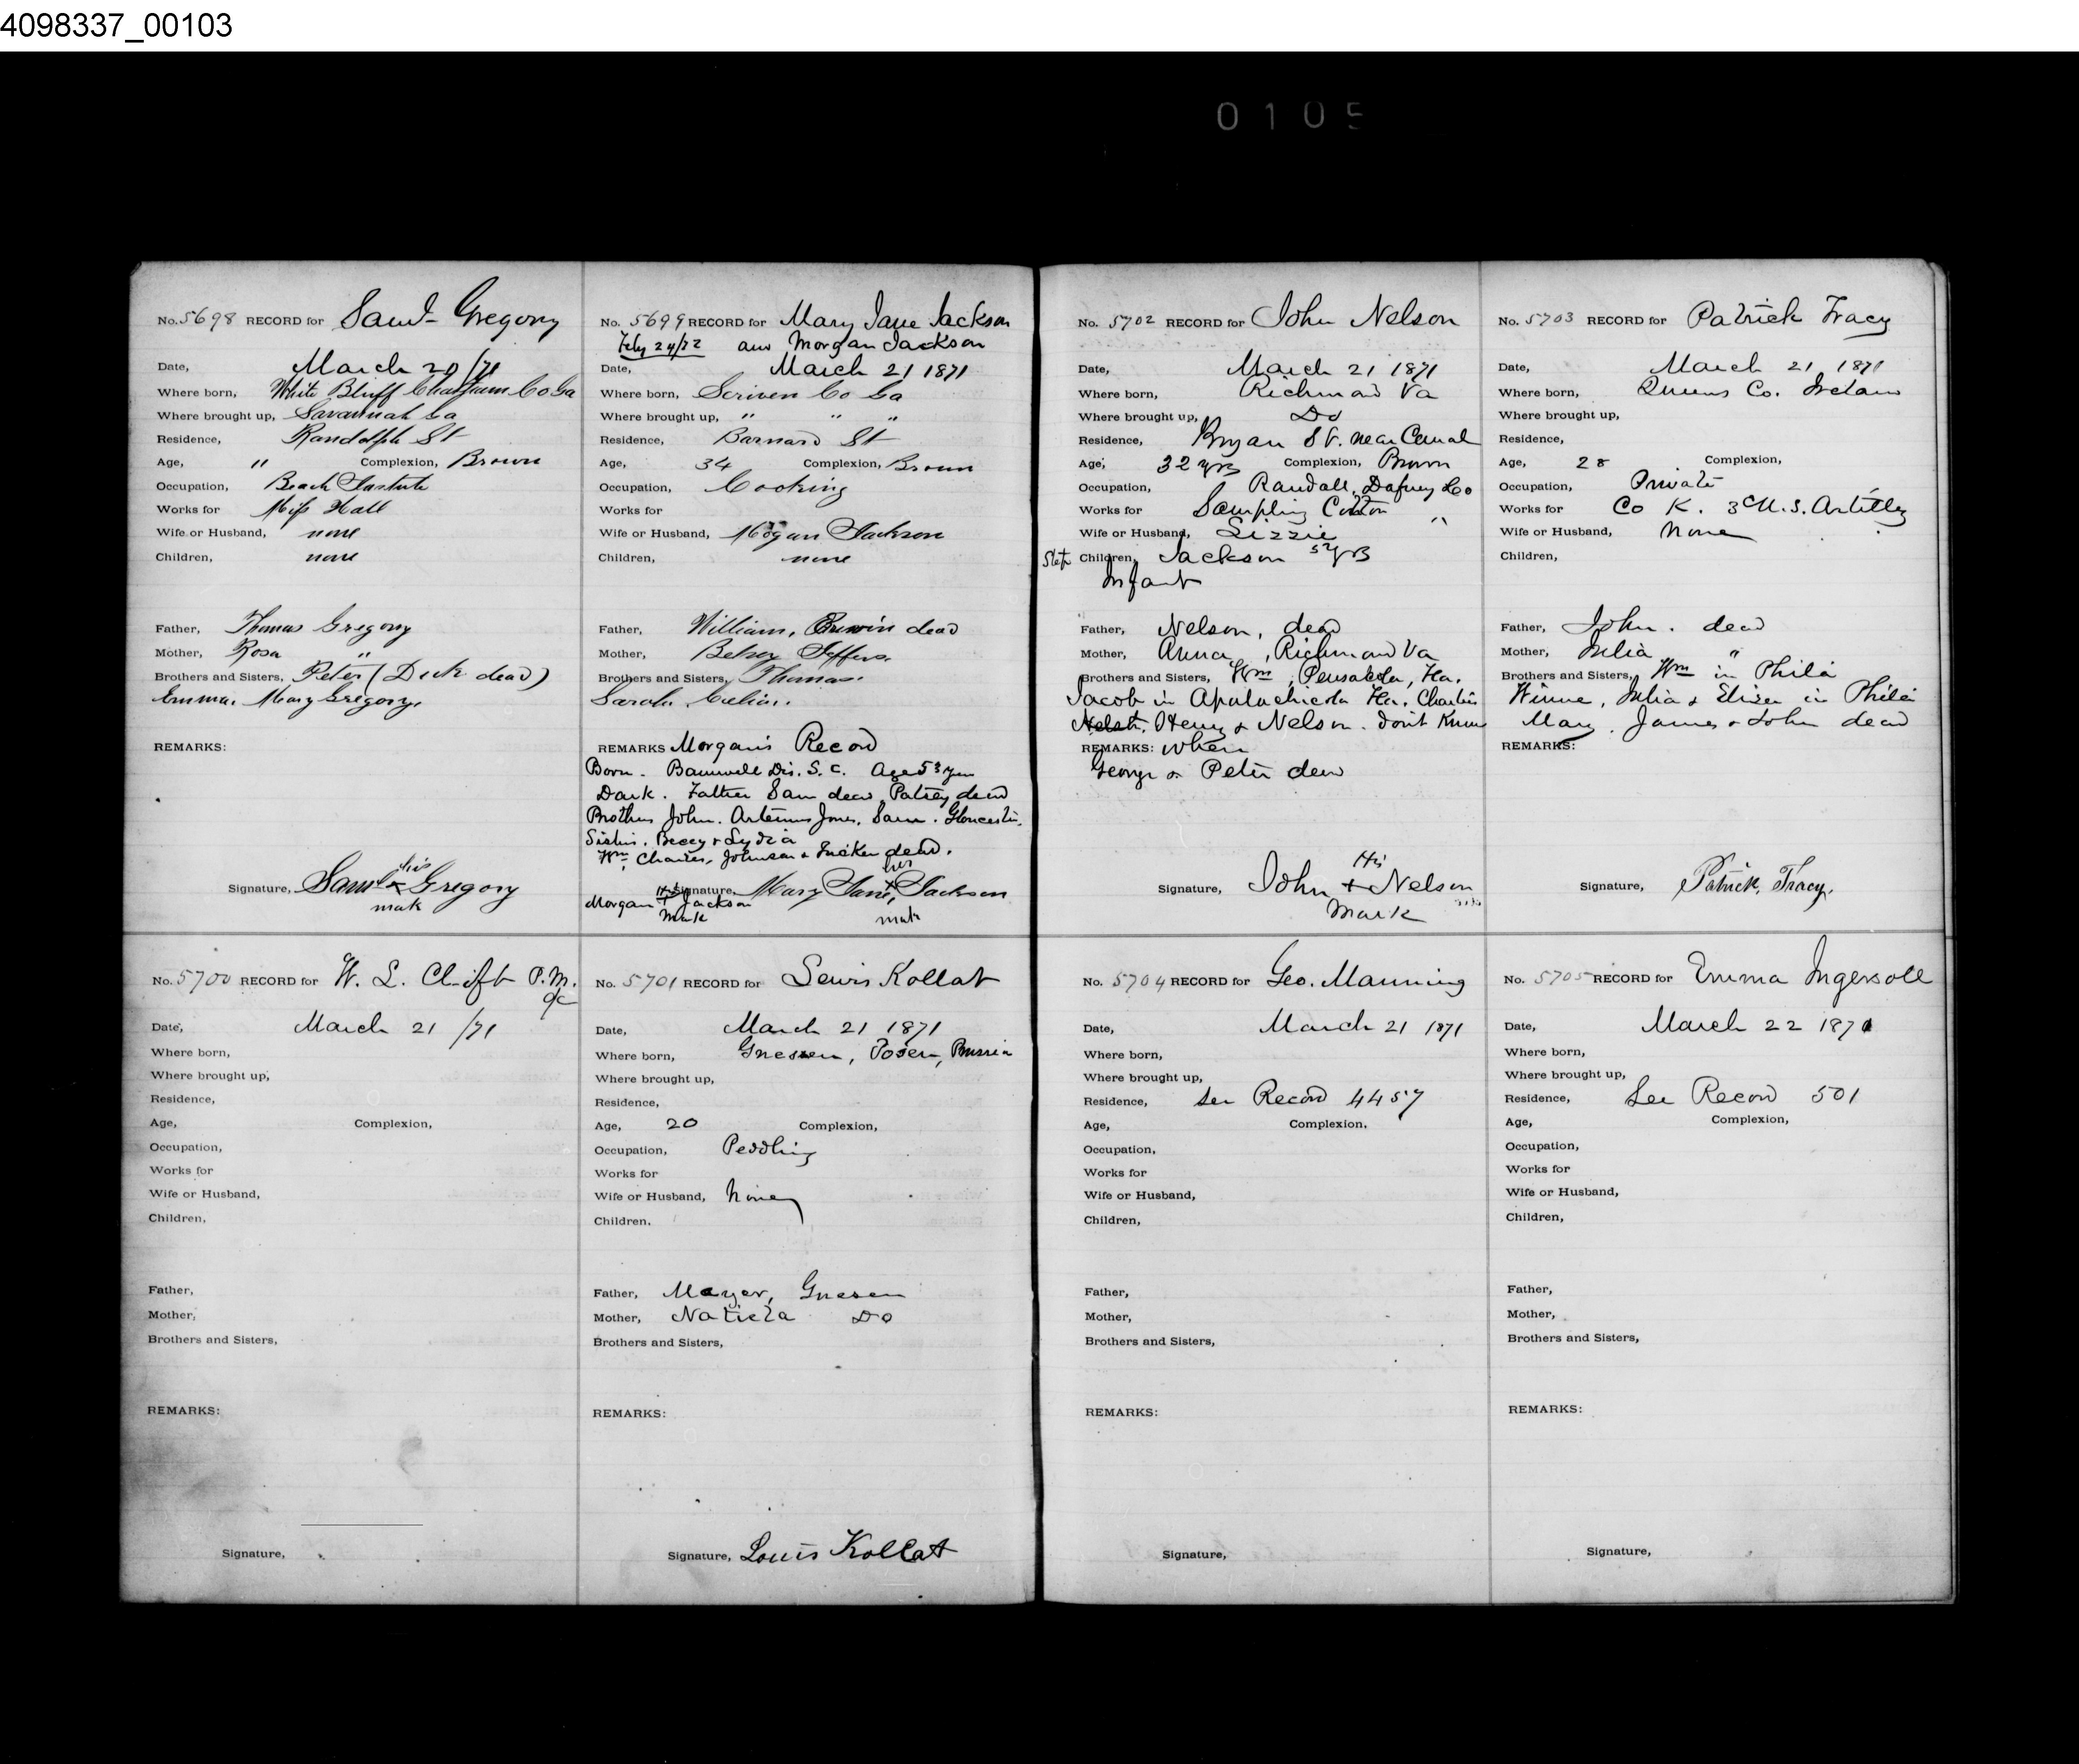 4098337_00103
0105
No. 5698 RECORD for Saml Gregory
Date, March 20/71
Where born, White Bluff Chatham Co Ga
Where brought up, Savannah Ga
Residence, Randolph St
Age, " Complexion, Brown
Occupation, Beach Institute
Works for Miss Hall
Wife or Husband, none
Children, none
Father, Thomas Gregory
Mother, Rosa "
Brothers and Sisters, Peter (Dick dead)
Emma. Mary Gregory.
REMARKS:
his
Signature, Saml x Gregory
mark
No. 5699 RECORD for Mary Jane Jackson
Feby 24/72 and Morgan Jackson
Date, March 21 1871
Where born, Scriven Co Ga
Where brought up, " " "
Residence, Barnard St
Age, 34 Complexion, Brown
Occupation, Cooking
Works for
Wife or Husband, Morgan Jackson
Children, none
Father, William, dead
Mother, Betsey Jeffers.
Brothers and Sisters, Thomas.
Sarah. Celia.
REMARKS Morgan's Record
Born. Barnwell Dis. S. C. Age 53 yrs
Dark. Father Sam dead, Patsey dead
Brothers John. Artemus Jones. Sam. Gloucester.
Sisters. Beccy & Lydia
Wm, Charles, Johnson & Tucker dead.
her
Signature, Mary Jane x Jackson
mark
his
Morgan + Jackson
Mark
No. 5700 RECORD for W. L. Clift P.M.
o/c
Date, March 21 /71
Where born,
Where brought up,
Residence,
Age, Complexion,
Occupation,
Works for
Wife or Husband,
Children,
Father,
Mother,
Brothers and Sisters,
REMARKS:
Signature,
No. 5701 RECORD for Lewis Kollat
Date, March 21 1871
Where born, Gnesen, Posen, Prussia
Where brought up,
Residence,
Age, 20 Complexion,
Occupation, Peddling
Works for
Wife or Husband, None
Children.
Father, Mayer, Gnesen
Mother, Do
Brothers and Sisters,
REMARKS:
Signature, Louis Kollat
No. 5702 RECORD for John Nelson
Date, March 21 1871
Where born, Richmond Va
Where brought up, Do
Residence, Bryan St. near Canal
Age, 32 yrs Complexion, Brown
Occupation, Randall, Co
Works for Sampling Cotton "
Wife or Husband, Lizzie
Step Children, Jackson 5 yrs
Infant
Father, Nelson, dead
Mother, Anna, Richmond Va
Brothers and Sisters, Wm, Pensakola, Fla.
Jacob in Apalachicola Fla. Charles
Nelson. Henry & Nelson. don't know
REMARKS: when
George & Peter dead
His
Signature, John + Nelson
Mark
No. 5703 RECORD for Patrick Tracy
Date, March 21 1871
Where born, Queens Co. Ireland
Where brought up,
Residence,
Age, 28 Complexion,
Occupation, Private
Works for Co K. 3d U.S. Artilley
Wife or Husband, None
Children,
Father, John. dead
Mother, Julia "
Brothers and Sisters, Wm in Phila
Winne, Julia & Eliza in Phila
Mary, James & John dead
REMARKS:
Signature, Patrick, Tracy.
No. 5704 RECORD for Geo. Manning
Date, March 21 1871
Where born,
Where brought up,
Residence, See Record 4457
Age, Complexion.
Occupation,
Works for
Wife or Husband,
Children,
Father,
Mother,
Brothers and Sisters,
REMARKS:
Signature,
No. 5705 RECORD for Emma Ingersoll
Date, March 22 1871
Where born,
Where brought up,
Residence, See Record 501
Age, Complexion,
Occupation,
Works for
Wife or Husband,
Children,
Father,
Mother,
Brothers and Sisters,
REMARKS:
Signature,